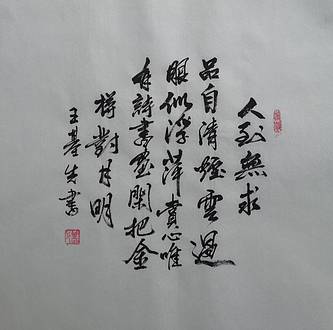 人到無求
品自清煙雲過
眼似浮萍賞心唯
有詩書画閑把金
樽對月明
王基生書